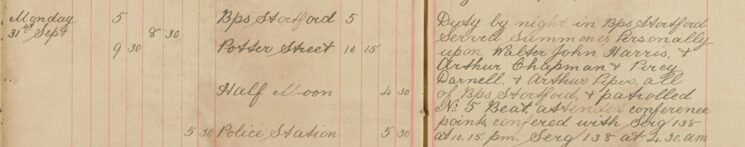 Monday 5 Bps Stortford 5 Duty by night in Bps Stortford
31st Sept 8 30 Served Summones Personally
9 30 Potter Street 10 15 upon Walter John Harris, &
Arthur Chapman & Percy
Darnell & Arthur Piper, all
Half Moon 4 30 of Bps Stortford, & patrolled
No 5 Beat, attended conference
points confered with Serg 138
5 30 Police Station 5 30 at 10.15. pm. Serg 138 at 4.30. am